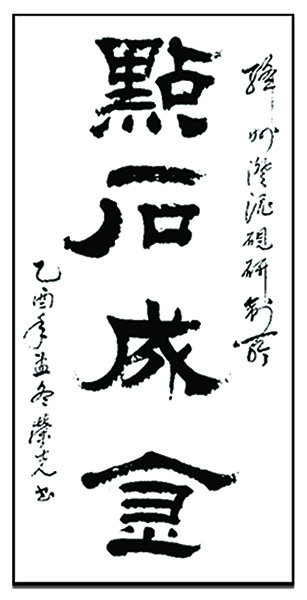 絳州澄泥硯研制所
點石成金
乙酉年孟冬榮堯书